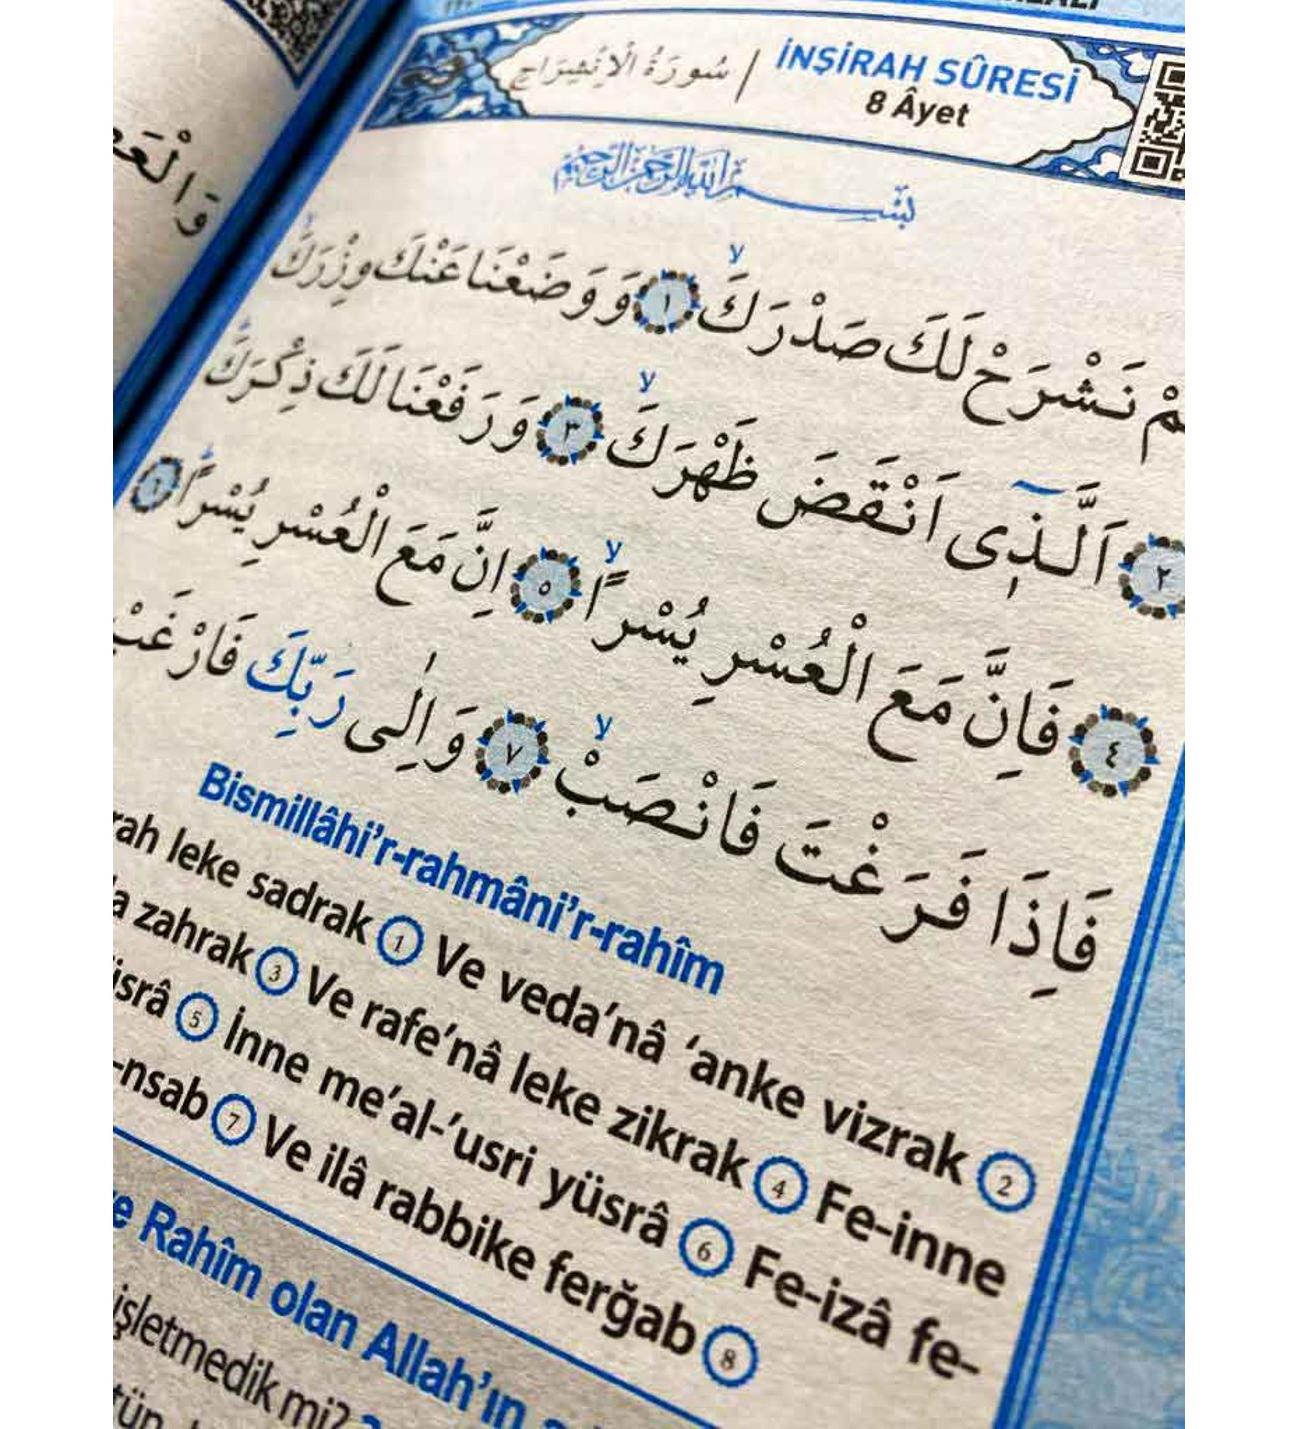 سُورَةُ الْاِنْشِرَاحِ | İNŞİRAH SÛRESİ
8 Âyet
بِسْمِ اللّٰهِ الرَّحْمٰنِ الرَّحِيمِ
نَشْرَحْ لَكَ صَدْرَكَۙ ﴿١﴾ وَوَضَعْنَا عَنْكَ وِزْرَكَۙ
﴿٢﴾ اَلَّذ۪ٓى اَنْقَضَ ظَهْرَكَۙ ﴿٣﴾ وَرَفَعْنَا لَكَ ذِكْرَكَۜ
﴿٤﴾ فَاِنَّ مَعَ الْعُسْرِ يُسْرًاۙ ﴿٥﴾ اِنَّ مَعَ الْعُسْرِ يُسْرًاۜ ﴿٦﴾
فَاِذَا فَرَغْتَ فَانْصَبْۙ ﴿٧﴾ وَاِلٰى رَبِّكَ فَارْغَبْ
Bismillâhi’r-rahmâni’r-rahîm
rah leke sadrak 1 Ve veda’nâ ‘anke vizrak 2
zahrak 3 Ve rafe’nâ leke zikrak 4 Fe-inne
srâ 5 İnne me’al-‘usri yüsrâ 6 Fe-izâ fe-
-nsab 7 Ve ilâ rabbike ferğab 8
e Rahîm olan Allah’ın
işletmedik mi?
وَالْعَ